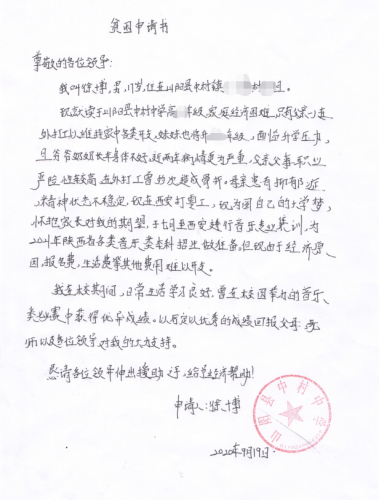 贫困申请书
尊敬的各位领导:
我叫徐博,男,17岁,住在山阳县中村镇
现就读于山阳县中村中学高 年级,家庭经济困难,只有父亲一人
外打工以维持家中各类开支,妹妹也将升 年级,面临升学压力,
且爷爷奶奶长年身体不好,近两年病情更为严重,父亲从事职业
严险性较高,在外打工曾多次造成骨折。母亲患有抑郁症,
精神状态不稳定,现在西安打零工,我为圆自己的大学梦,
怀抱家长对我的期望,于七月至西安进行音乐专业集训,为
2021年陕西省各类音乐类本科招生做准备。但现由于经济原
因,报名费,生活费等其他费用难以开支。
我在校期间,日常生活学习良好,曾在校园举办的音乐
类比赛中获得优异成绩。以后定以优秀的成绩回报父母、老
师以及各位领导对我的大力支持。
恳请各位领导伸出援助之手,给予经济帮助!
申请人:徐博
山阳县中村中学
2020年9月19日.